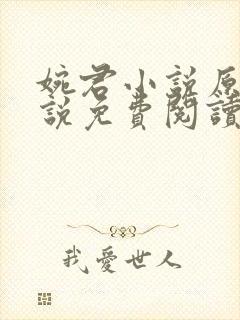 婉君小说原
說免費閱讀
我愛世人